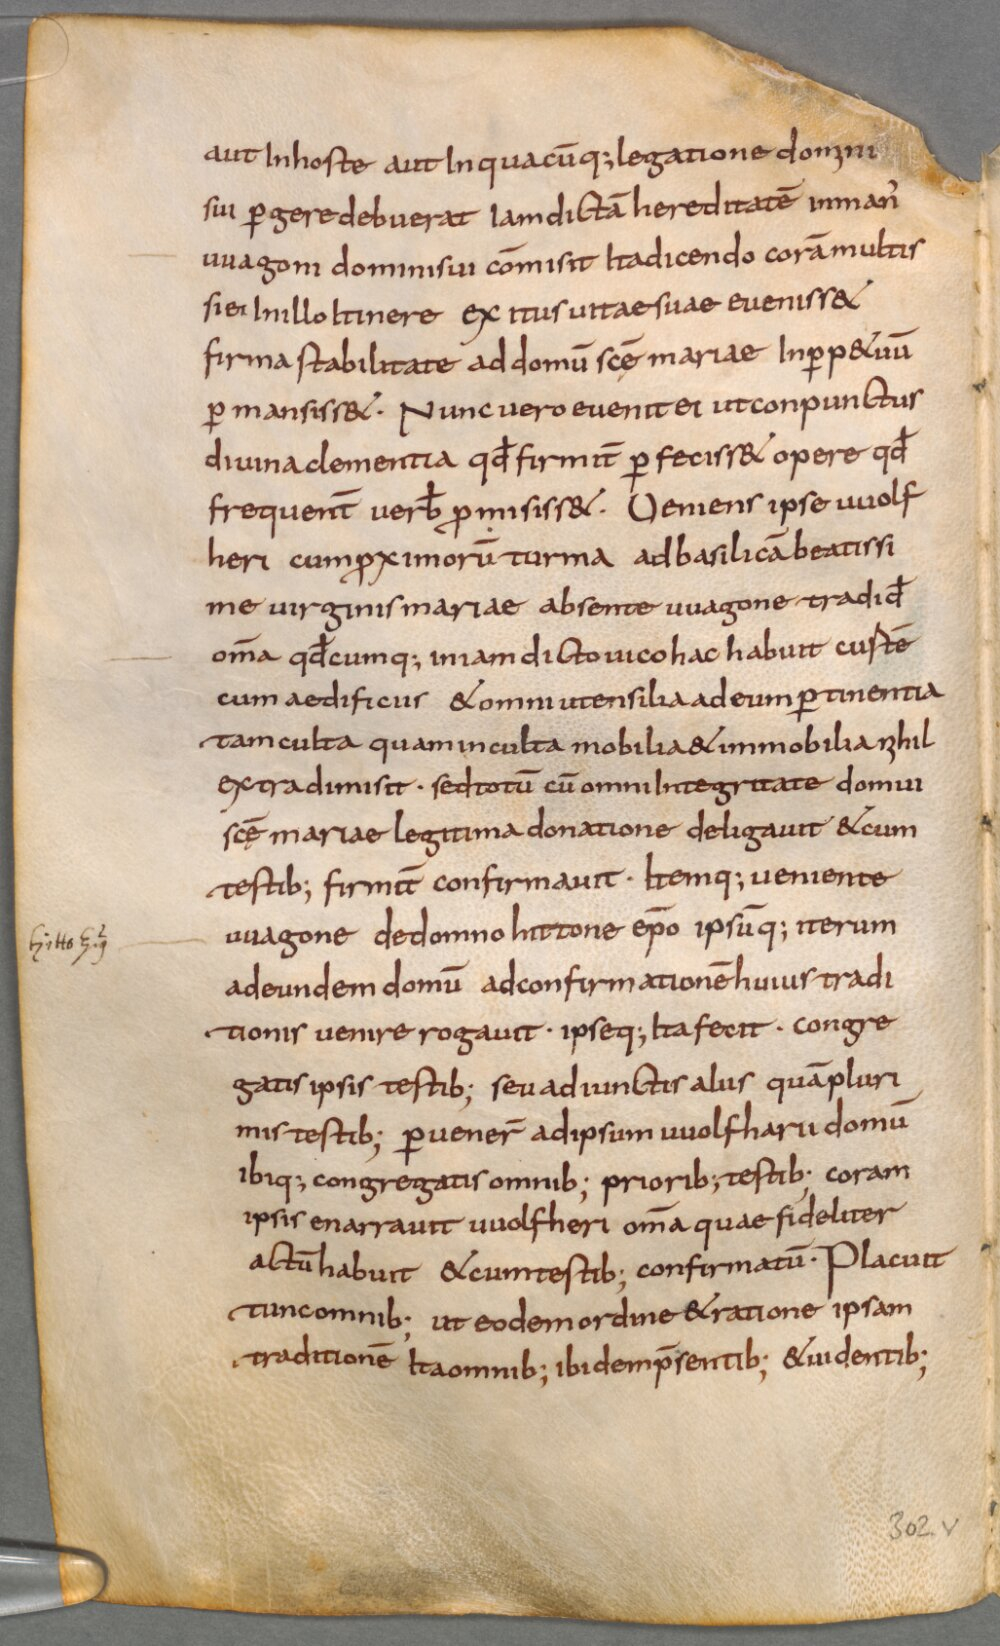 aut In hoste aut In quacūq; legatione domni
sui ꝑgere debuerat Iam dictā hereditatē in man̄
uuagoni domini sui cōmisit Ita dicendo corā multis
si ei In illo Itinere exitus uitae suae eueniss&
firma stabilitate ad domū scę̄ mariae In ꝑp&uū
ꝑmansiss&. Nunc uero euenit ei ut conpunctus
diuina clementia qđ firmit̄ ꝑfeciss& opere qđ
frequent̄ uerƀ ꝓmisiss&. Ueniens ipse uuolf
heri cum ꝓximorū turma ad basilicā beatissi
me uirginis mariae absente uuagone tradiđ
om̄a qđcumq; in iam dicto uico hac habuit custē
cum aedificiis & omni utensilia ad eum ꝑtinentia
tam culta quam inculta mobilia & immobilia nihil
extra dimisit. sed totū cū omni Integritate domui
scę̄ mariae legitima donatione deligauit & cum
testib; firmit̄ confirmauit. Itemq; ueniente
uuagone de domno hittone ep̄o ipsūq; iterum
ad eundem domū ad confirmationē huius tradi
tionis uenire rogauit. ipseq; Ita fecit. congre
gatis ipsis testib; seu adiunctis aliis quā pluri
mis testib; ꝑuener̄ ad ipsum uuolfharii domū
ibiq; congregatis omnib; priorib; testib; coram
ipsis enarrauit uuolfheri om̄a quae fideliter
actū habuit & cum testib; confirmatū. Placuit
tunc omnib; ut eodem ordine & ratione ipsam
traditionē Ita omnib; ibidem p̄sentib; & uidentib;
302.v